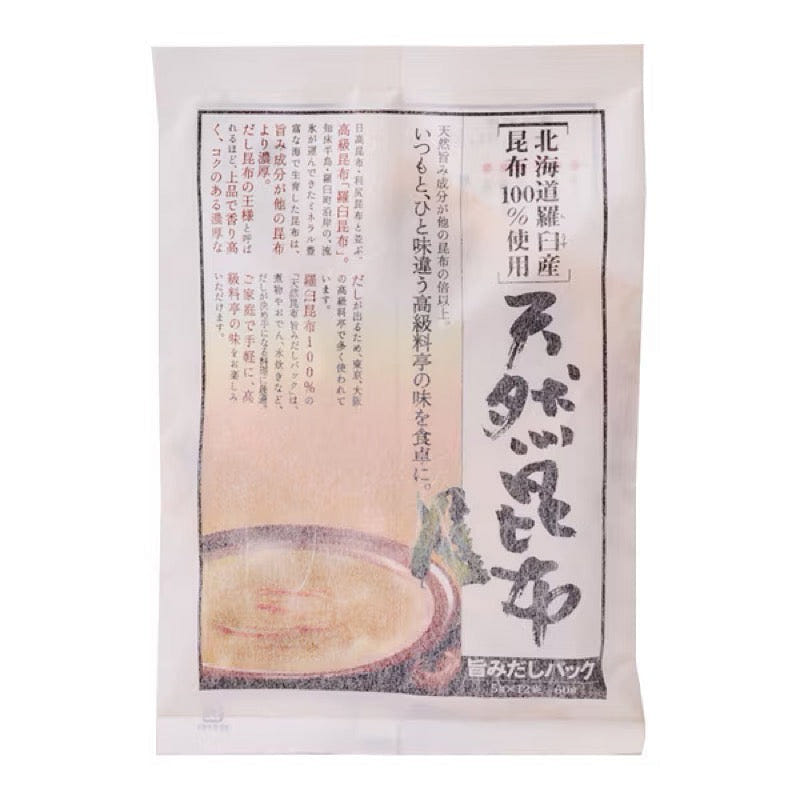 北海道羅臼産
らうす
昆布100%使用
天然昆布
旨みだしパック
5g×12袋 60g
天然旨み成分が他の昆布の倍以上。
いつもと、ひと味違う高級料亭の味を食卓に。
日高昆布・利尻昆布と並ぶ、
高級昆布「羅臼昆布」。
知床半島・羅臼町沿岸の、流
氷が運んできたミネラル豊
富な海で生育した昆布は、
旨み成分が他の昆布
より濃厚。
だし昆布の王様と呼ば
れるほど、上品で香り高
く、コクのある濃厚な
だしが出るため、東京、大阪
の高級料亭で多く使われて
います。
羅臼昆布100%の
「天然昆布旨みだしパック」は、
煮物やおでん、水炊きなど、
だしが決め手になる料理に最適。
ご家庭で手軽に、高
級料亭の味をお楽しみ
いただけます。